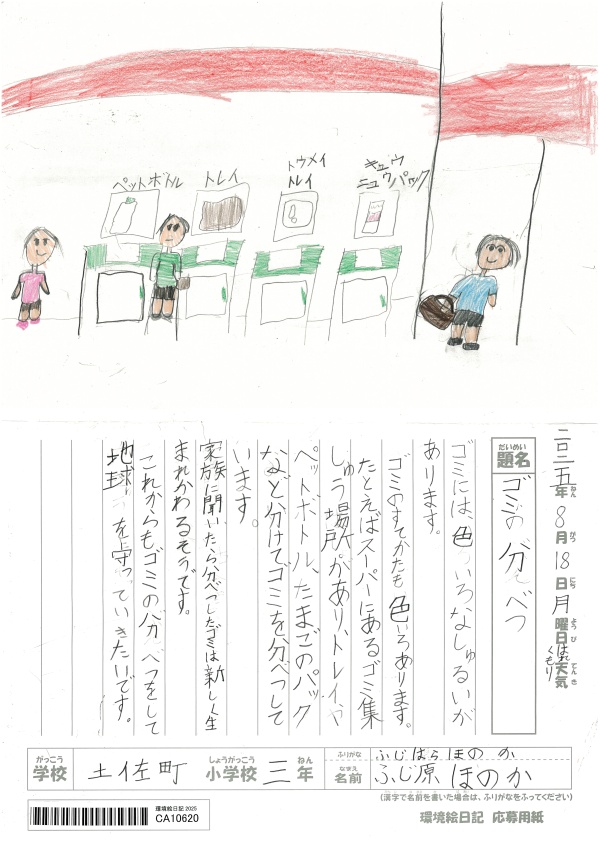 ペットボトル
トレイ
トウメイ
トレイ
キュウ
ニュウパック
二〇二五年8月18日月曜日 天気 はれ くもり
ねん がつ にち ようび てんき
だいめい
題名
ゴミの分べつ
ゴミには、色いろなしゅるいが
あります。
ゴミのすてかたも色いろあります。
たとえばスーパーにあるゴミ集
しゅう場所があり、トレイや
ペットボトル、たまごのパック
など分けてゴミを分べつして
います。
家族に聞いたら分べつしたゴミは新しく生
まれかわるそうです。
これからもゴミの分べつをして
地球を守っていきたいです。
がっこう しょうがっこう ねん
学校 土佐町 小学校 三年
ふりがな ふじはら ほのか
なまえ
名前 ふじ原 ほのか
(漢字で名前を書いた場合は、ふりがなをふってください)
環境絵日記 2025
CA10620
環境絵日記 応募用紙